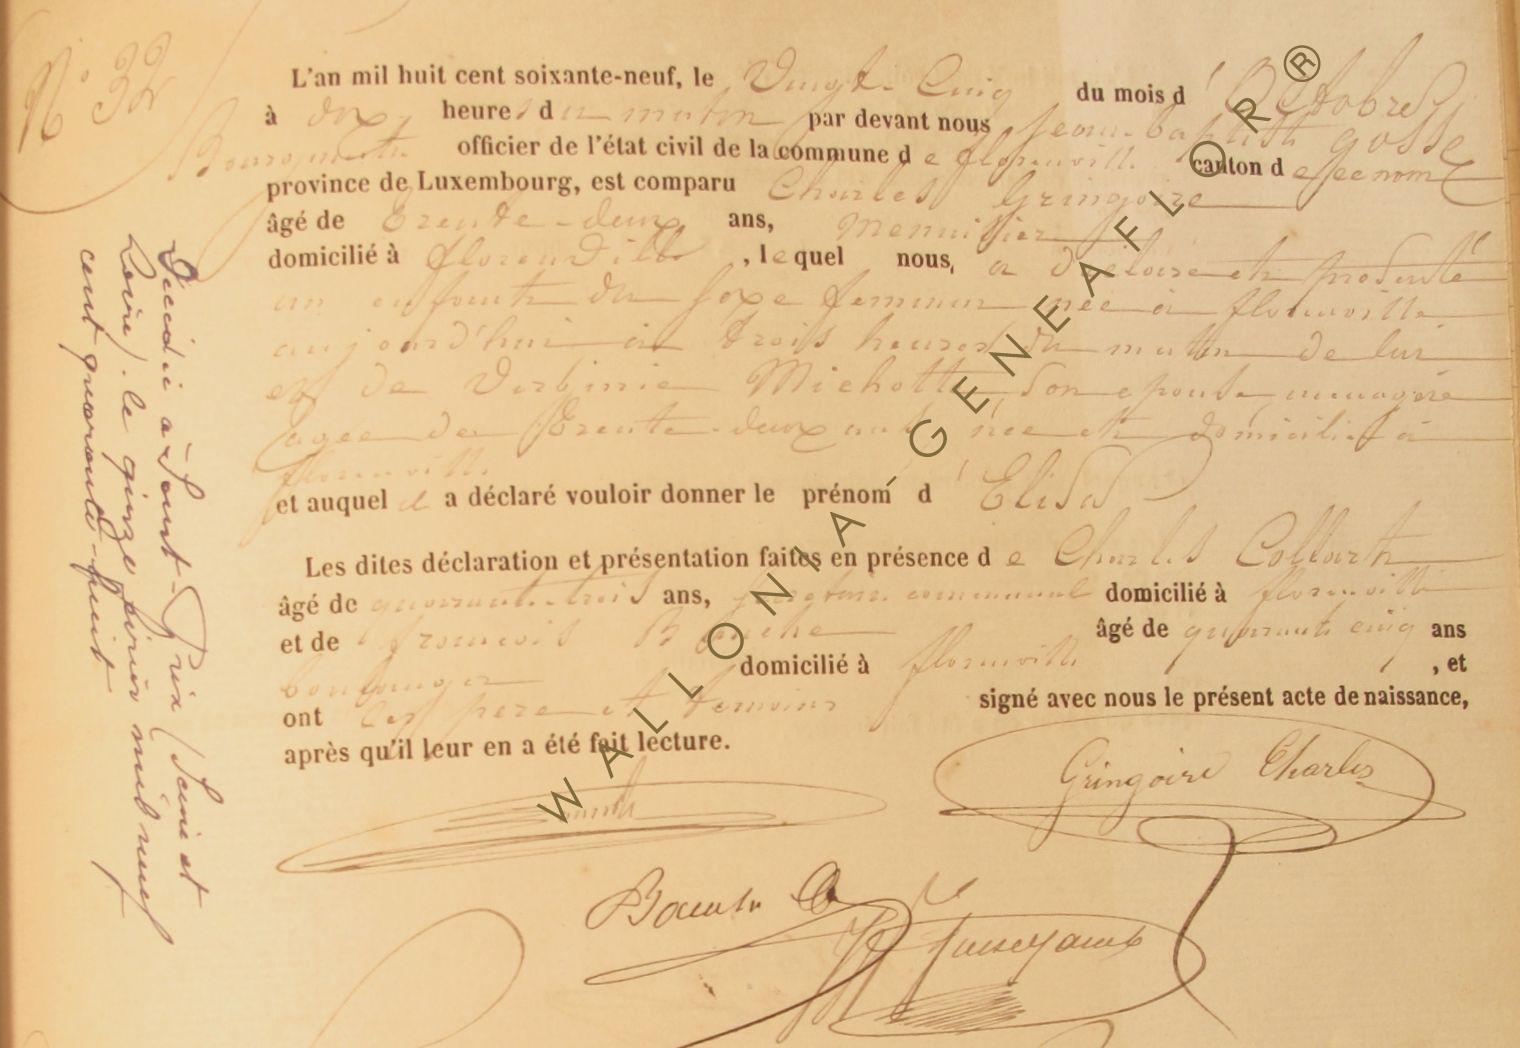 N° 32
L'an mil huit cent soixante-neuf, le Vingt Cinq du mois d'Octobre
à dix heures du matin par devant nous Jean-baptiste gosse
Bourgmestre officier de l'état civil de la commune de florenville canton de
province de Luxembourg, est comparu Charles Gringoire
âgé de trente-deux ans, Menuisier
domicilié à florenville, lequel nous, a déclaré et présenté
un enfant du sexe féminin née à florenville
aujourd'hui à trois heures du matin de lui
et de Virginie Michotte Son epouse menagère
agée de trente-deux ans née et domiciliée à
florenville
et auquel il a déclaré vouloir donner le prénom d'Elisa
Les dites déclaration et présentation faites en présence de Charles Collarth
âgé de quarante-trois ans, communal domicilié à florenville
et de françois âgé de quarante cinq ans
boulanger domicilié à florenville, et
ont les père et témoins signé avec nous le présent acte de naissance,
après qu'il leur en a été fait lecture.
Gringoire Charles
Décédée à Saint-Prix (Seine et
Loire). le quinze février mil neuf
cent quarante-huit
WALLONIA-GENEAFLOR®